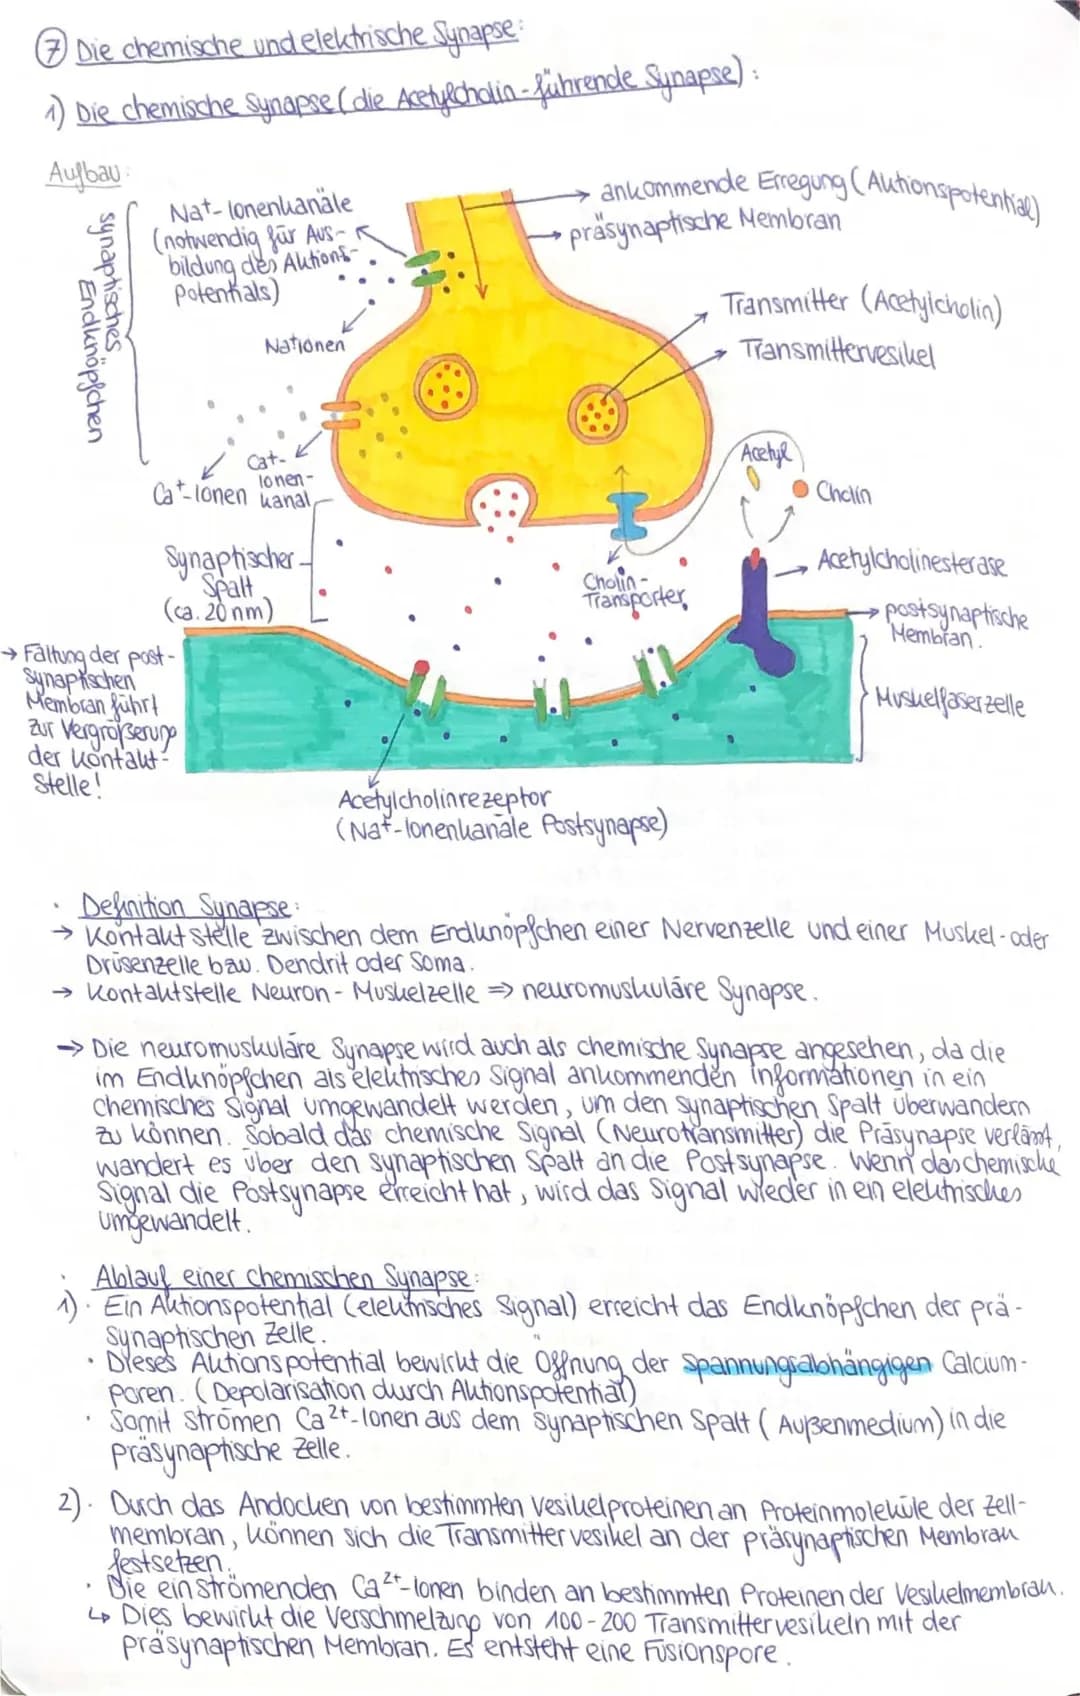 ⑦ Die chemische und elektrische Synapse:
1) Die chemische Synapse (die Acetylcholin-führende Synapse):
Aufbau:
Synaptisches
Endknöpfchen
Na+-Ionenkanäle
(notwendig für Aus-
bildung des Aktions-
potentials)
Na+ionen
Ca+-
Ionen-
kanal
Ca+-Ionen
Synaptischer
Spalt
(ca. 20 nm)
→ Faltung der post-
synaptischen
Membran führt
zur Vergrößerung
der Kontakt-
stelle!
ankommende Erregung (Aktionspotential)
präsynaptische Membran
Transmitter (Acetylcholin)
Transmittervesikel
Acetyl
Cholin
Cholin-
Transporter
Acetylcholinesterase
postsynaptische
Membran.
Muskelfaserzelle
Acetylcholinrezeptor
(Na+-Ionenkanäle Postsynapse)
· Definition Synapse:
→ Kontaktstelle zwischen dem Endknöpfchen einer Nervenzelle und einer Muskel- oder
Drüsenzelle bzw. Dendrit oder Soma.
→ Kontaktstelle Neuron - Muskelzelle ⇒ neuromuskuläre Synapse.
→ Die neuromuskuläre Synapse wird auch als chemische Synapse angesehen, da die
im Endknöpfchen als elektrisches Signal ankommenden Informationen in ein
chemisches Signal umgewandelt werden, um den synaptischen Spalt überwandern
zu können. Sobald das chemische Signal (Neurotransmitter) die Präsynapse verlässt,
wandert es über den synaptischen Spalt an die Postsynapse. Wenn das chemische
Signal die Postsynapse erreicht hat, wird das Signal wieder in ein elektrisches
umgewandelt.
· Ablauf einer chemischen Synapse:
1) · Ein Aktionspotential (elektrisches Signal) erreicht das Endknöpfchen der prä-
synaptischen Zelle.
· Dieses Aktionspotential bewirkt die Öffnung der spannungsabhängigen Calcium-
poren. (Depolarisation durch Aktionspotential)
· Somit strömen Ca2+-Ionen aus dem synaptischen Spalt (Außenmedium) in die
präsynaptische Zelle.
2) · Durch das Andocken von bestimmten Vesikelproteinen an Proteinmoleküle der Zell-
membran, können sich die Transmittervesikel an der präsynaptischen Membran
festsetzen.
· Die einströmenden Ca2+-Ionen binden an bestimmten Proteinen der Vesikelmembran.
↳ Dies bewirkt die Verschmelzung von 100-200 Transmittervesikeln mit der
präsynaptischen Membran. Es entsteht eine Fusionspore.